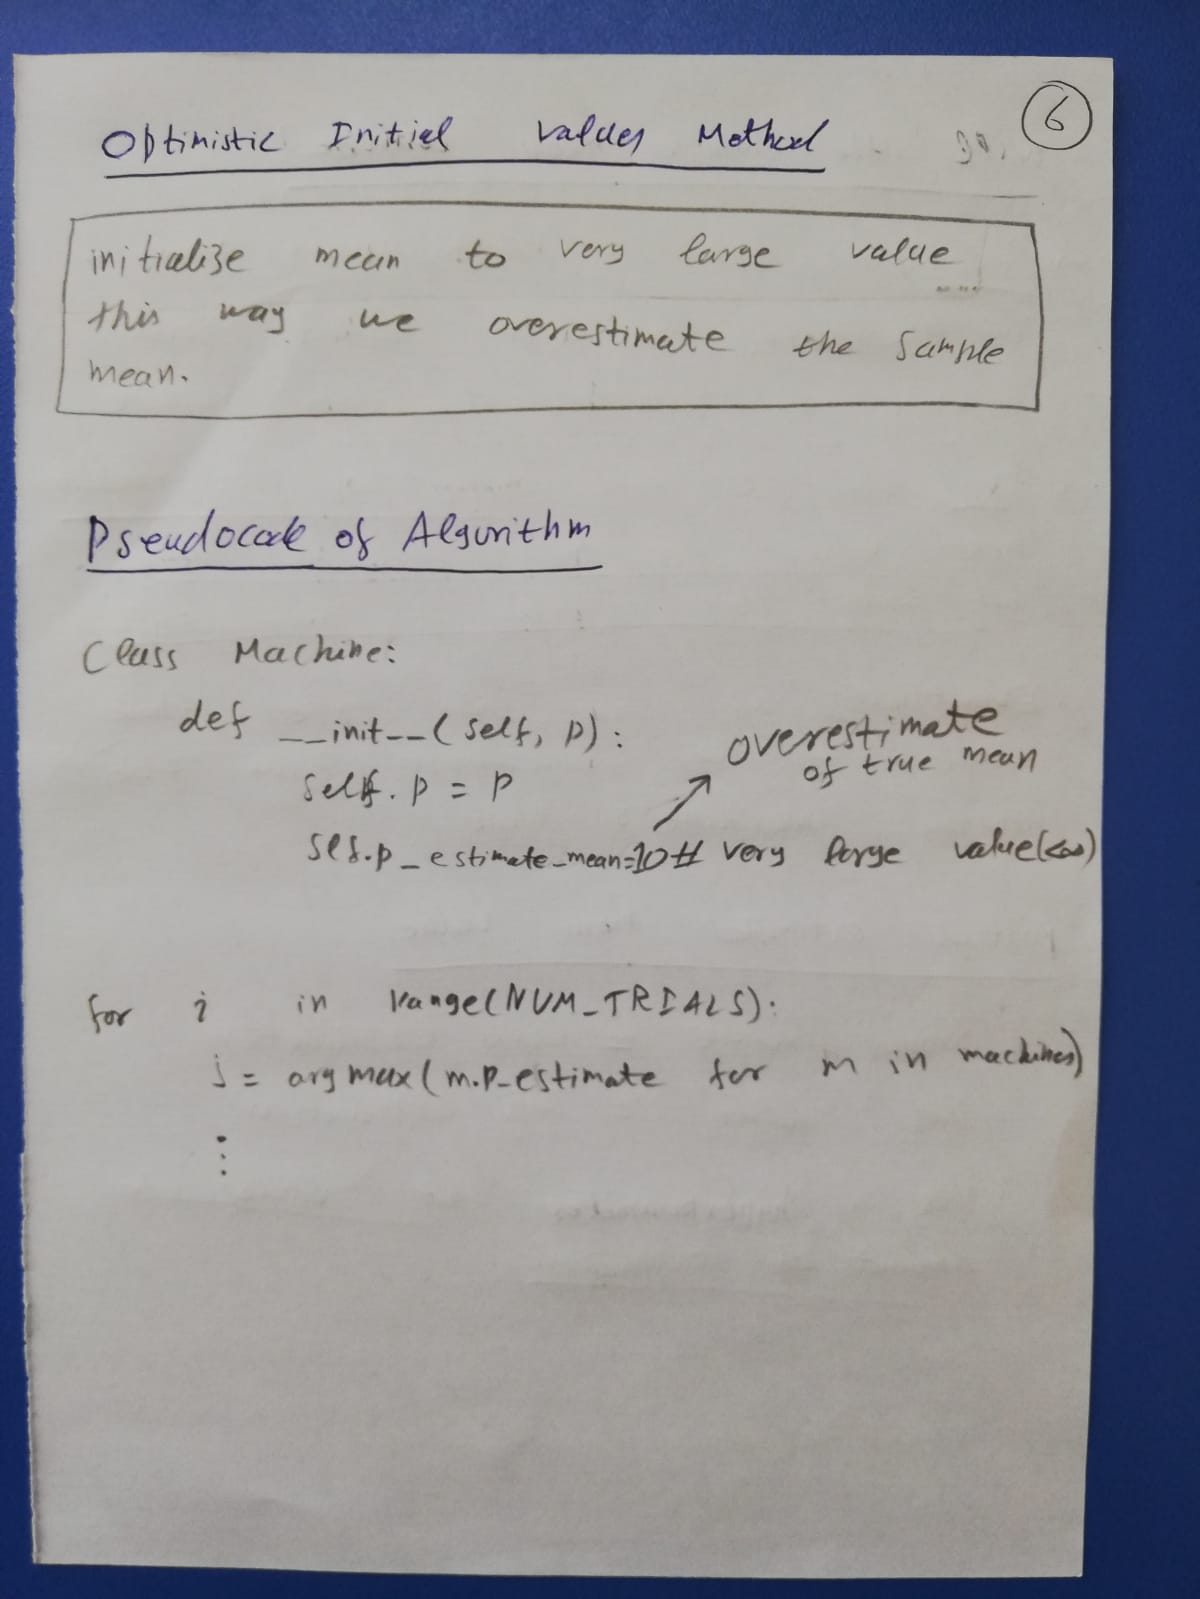 6
Optimistic Initial Values Method
initialize mean to very large value
this way we overestimate the sample
mean.
Pseudocode of Algorithm
Class Machine:
def __init__(self, p):
self.p = p
overestimate
of true mean
self.p_estimate_mean=10 # very large value(<∞)
for i in range(NUM_TRIALS):
j = argmax(m.p_estimate for m in machines)
⋮